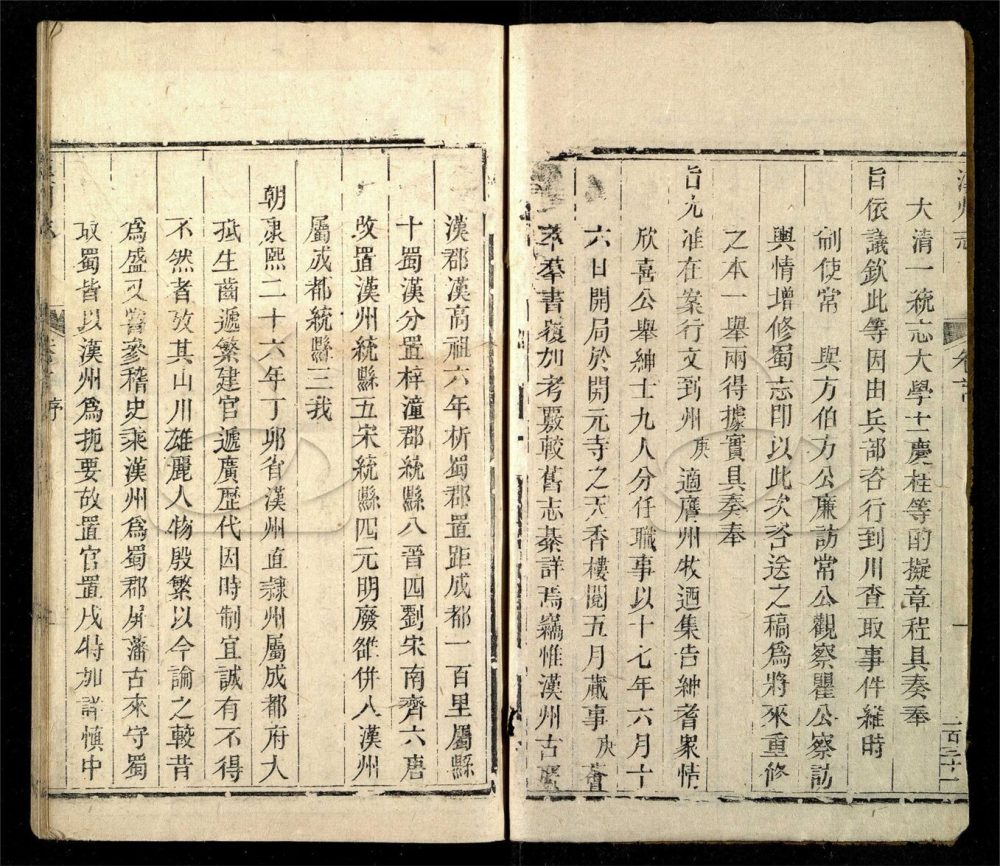 大清一統志大學士慶桂等酌擬章程具奏奉
旨依議欽此等因由兵部咨行到川查取事件維時
制使常 與方伯方公廉訪常公觀察瞿公察訪
輿情增修蜀志即以此次咨送之稿為將來重修
之本一舉兩得據實具奏奉
旨允准在案行文到州庚適膺州牧迺集告紳耆眾情
欣喜公舉紳士九人分任職事以十七年六月十
六日開局於開元寺之天香樓閱五月蕆事庚薈
萃羣書覆加考覈較舊志綦詳焉竊惟漢州古廣
漢郡漢高祖六年析蜀郡置距成都一百里屬縣
十蜀漢分置梓潼郡統縣八晉四劉宋南齊六唐
改置漢州統縣五宋統縣四元明廢雒併入漢州
屬成都統縣三我
朝康熙二十六年丁卯省漢州直隸州屬成都府大
抵生齒遞繁建官遞廣歷代因時制宜誠有不得
不然者攷其山川雄麗人物殷繁以今論之較昔
為盛又嘗參稽史乘漢州為蜀郡屏藩古來守蜀
取蜀皆以漢州為扼要故置官置戍特加詳慎中